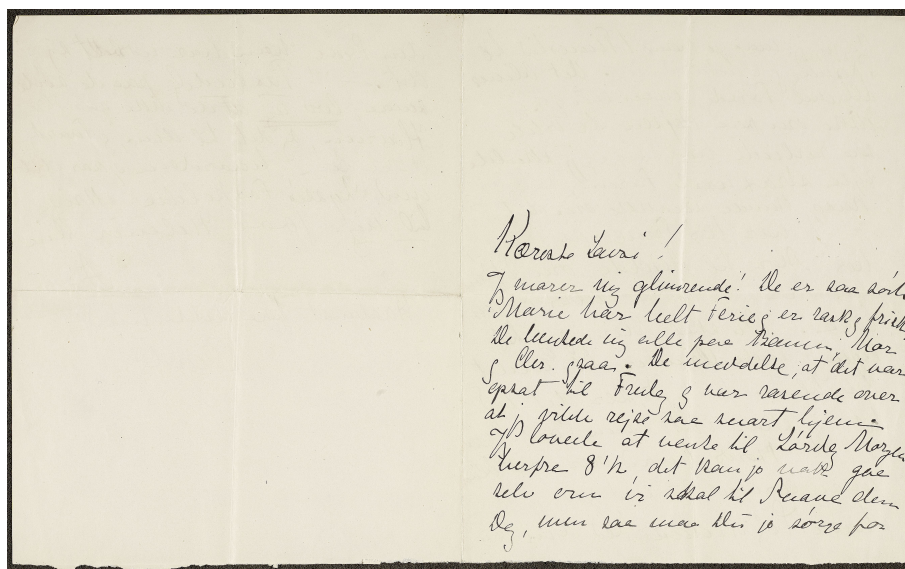 Kæreste Lavri!
Jeg morer mig glimrende! De er saa sød
Marie har helt Ferie og er rask og frisk
De hentede mig alle paa Banen, Mor
og Chr. ogsaa. De meddelte, at det var
opsat til Fredag og var rasende over
at jeg vilde rejse saa snart hjem.
Jeg lovede at vente til Lørdag Morgen
herfra 8½, det kan jo nok gaa
selv om vi skal til den
Dag, men saa maa Du jo sørge for